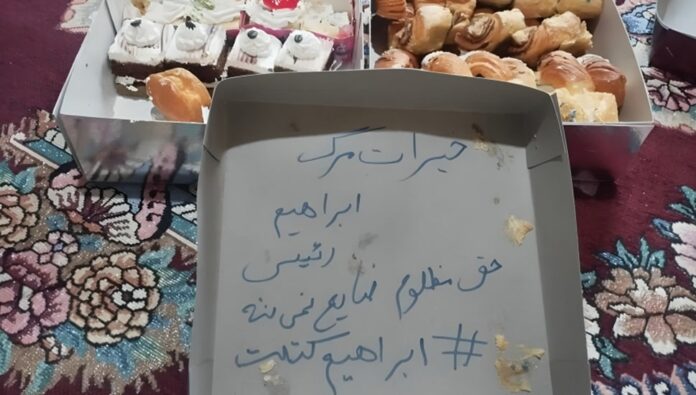 خیرات مرگ
ابراهیم
رئیسی
حق مظلوم ضایع نمی‌شه
# ابراهیم کتلت